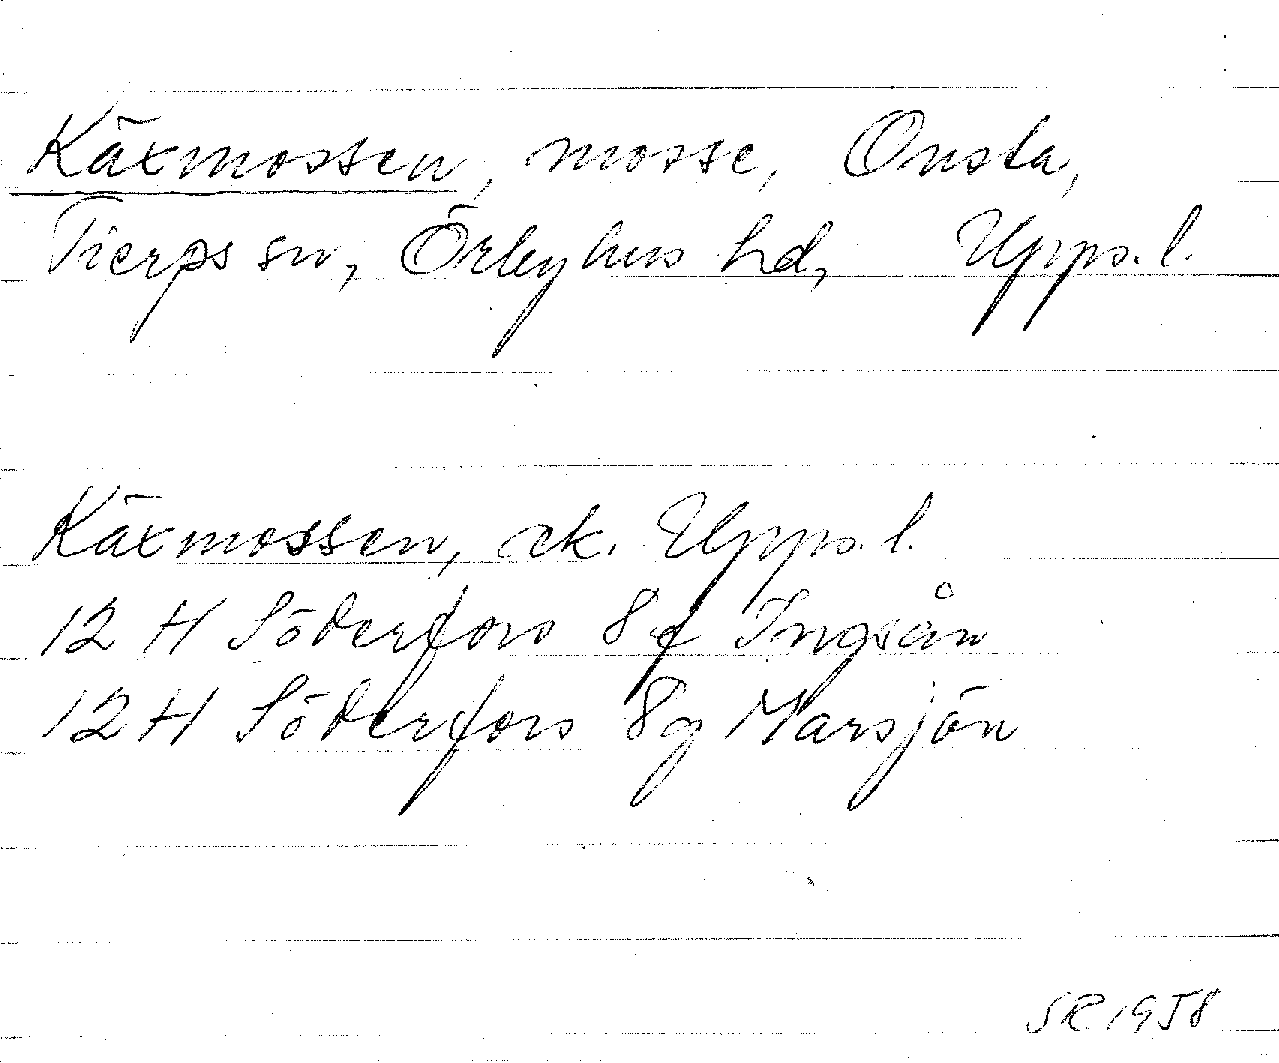 Käxmossen, mosse, Onsta,
Tierps sn, Örbyhus hd, Upps. l.
Käxmossen, ek. Upps. l.
12 H Söderfors 8 f Ingsån
12 H Söderfors 8g Marsjön
SR 1958